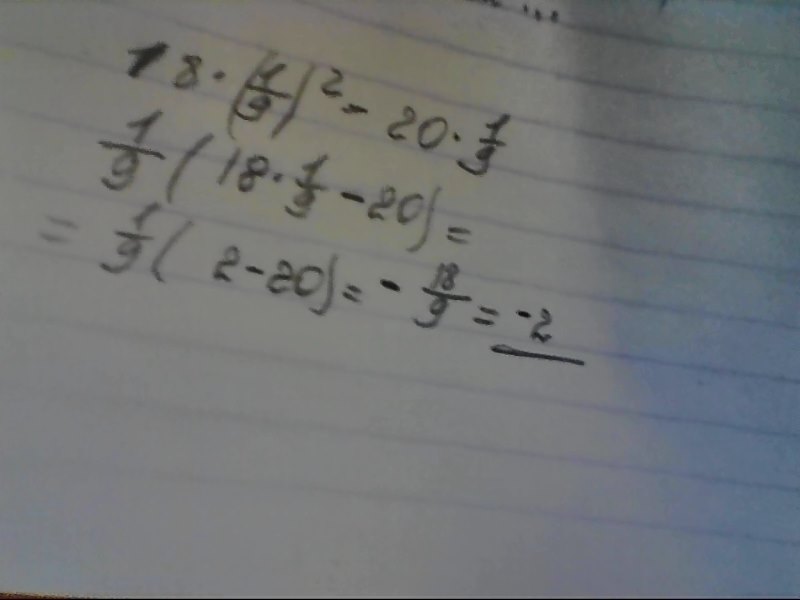 18 · (1/9)² - 20 · 1/9
1/9 ( 18 · 1/9 - 20) =
= 1/9 ( 2 - 20) = - 18/9 = -2